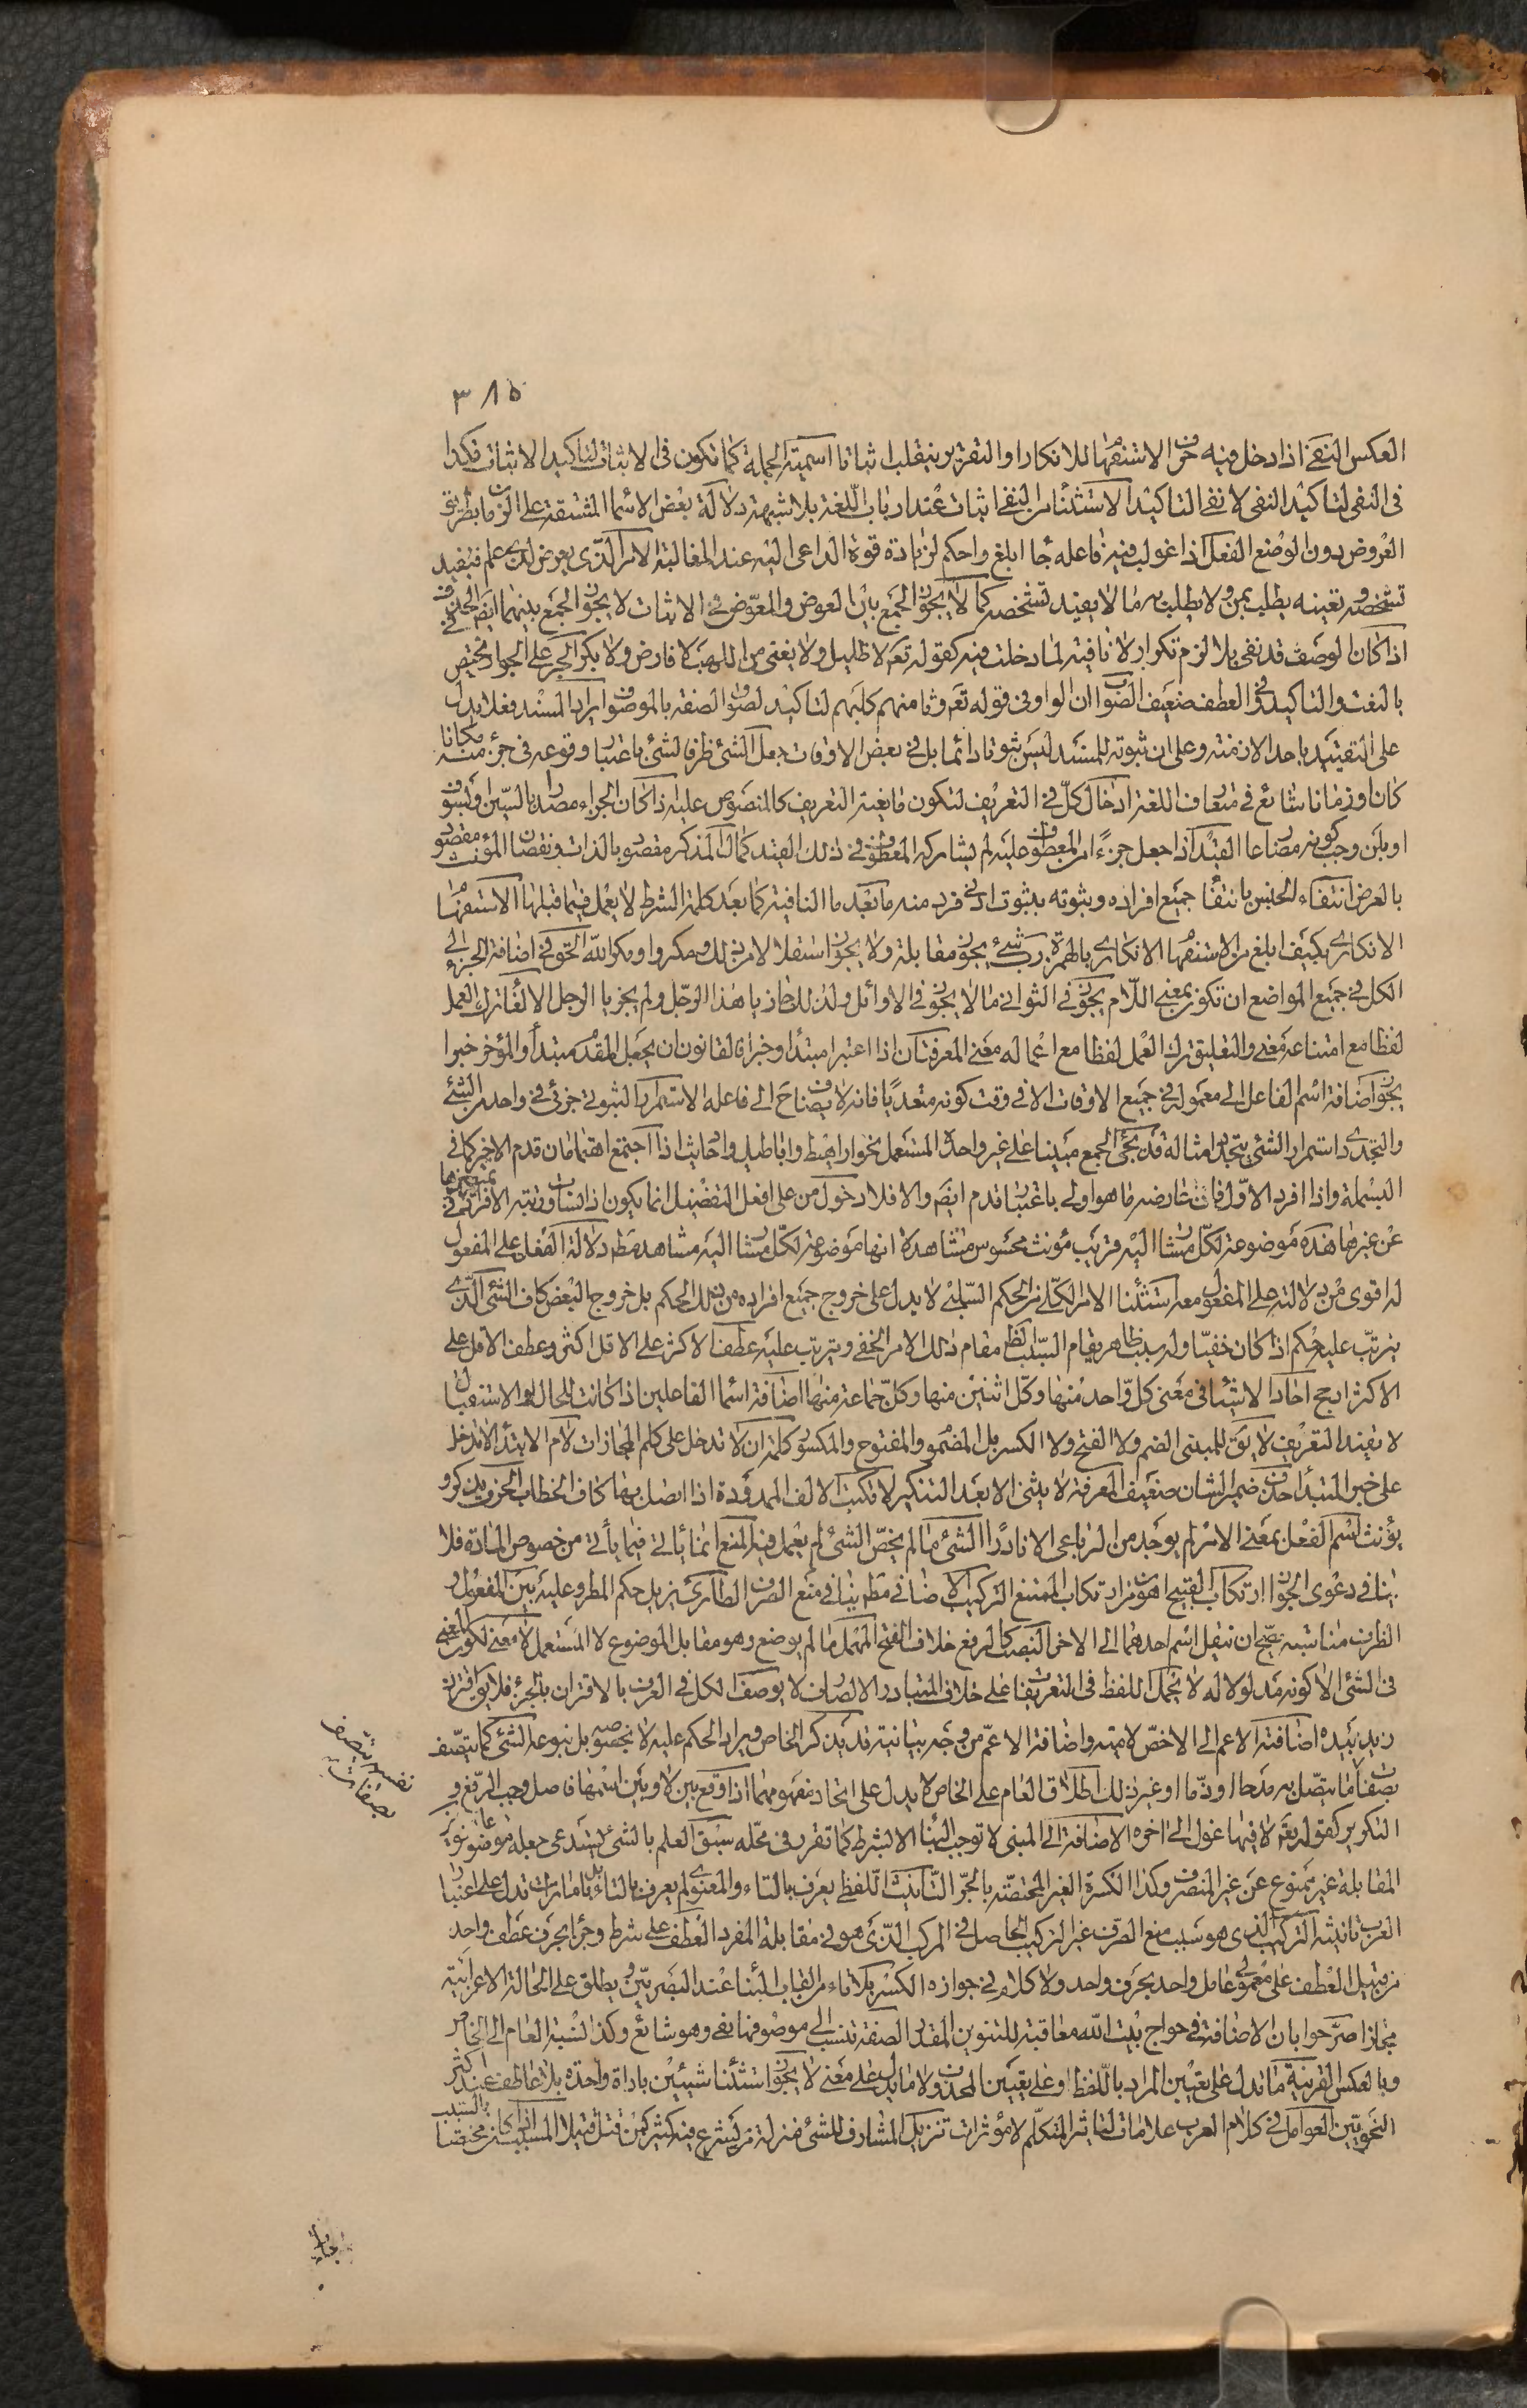 ٣٨٥
العكس النفى اذا دخل فيه حرف الاستفهام للانكار او التقرير ينقلب اثباتا اسمية الجملة كما تكون فى الاثبات لتاكيد الاثبات فكذا
فى النفى لتاكيد النفى لا نفى التاكيد الاستثناء من النفى اثبات عند ارباب اللغة بلا شبهة دلالة بعض الاسماء المشتقة على الزمان بطريق
العروض دون الوضع الفعل اذا غولب فيه فاعله جاء ابلغ واحكم لزيادة قوة الداعى اليه عند المغالبة الامر الذى يعرض لذى علم فيفيد
تشخصه وتعينه يطلب بمن ولا يطلب به ما لا يفيد تشخصه كما لا يجوز الجمع بين العوض والمعوض فى الاثبات لا يجوز الجمع بينهما ايضا فى الحذف
اذا كان الوصف قد نفى بلا لزم تكرار لا نافية لما دخلت فيه كقوله تعم لا ظليل ولا يغنى من اللهب لا فارض ولا بكر الجر على الجوار مختص
بالنعت والتاكيد وفى العطف ضعيف الصواب ان الواو فى قوله تعم وثامنهم كلبهم لتاكيد لصوق الصفة بالموصوف ايراد المسند فعلا يدل
على التقييد باحد الازمنة وعلى ان ثبوته للمسند ليس ثبوتا دائما بل فى بعض الاوقات جعل الشئ ظرفا لشئ باعتبار وقوعه فى جزء منه مكانا
كان او زمانا شائع فى متعارف اللغة ادخال كل فى التعريف لتكون مانعية التعريف كالمنصوص عليه اذا كان الجزاء مصدرا بالسين او بسوف
او بلن وجب كونه مضارعا القيد اذا جعل جزءا من المعطوف عليه لم يشاركه المعطوف فى ذلك القيد كمال المذكر مقصود بالذات ونقصان المؤنث مقصود
بالعرض انتفاء الجنس بانتفاء جميع افراده وثبوته بثبوت ادنى فرد منه ما بعد ما النافية كما بعد كلمة الشرط لا يعمل فيما قبلها الاستفهام
الانكارى بكيف ابلغ من الاستفهام الانكارى بالهمزة رب شئ يجوز مقابلة ولا يجوز استقلالا من ذلك ومكروا ومكر الله الحق فى اضافة الجزء الى
الكل فى جميع المواضع ان تكون بمعنى اللام يجوز فى الثوانى ما لا يجوز فى الاوائل ولذلك جاز يا هذا الرجل ولم يجز يا الرجل الالغاء ترك العمل
لفظا مع امتناعه معنى والتعليق ترك العمل لفظا مع اعماله معنى المعرفتان اذا اعتبرا مبتدا وخبرا فالقانون ان يجعل المقدم مبتدأ والمؤخر خبرا
يجوز اضافة اسم الفاعل الى معموله فى جميع الاوقات الا فى وقت كونه متعديا فانه لا يضاف ح الى فاعله الاستمرار الثبوتى جزئى فى واحد من الشئ
والتجددى استمرار الشئ بتجدد امثاله قد يجئ الجمع مبنيا على غير واحده المستعمل نحو اراهط واباطيل واحاديث اذا اجتمع اهتمامان قدم الاخير كما فى
البسملة واذا افرد الاول فان عارضه ما هو اولى باعتباره قدم ايضم والا فلا دخول من على افعل التفضيل انما يكون اذا لم يشاور رتبه الافراد فى تمييزها
عن غيرها هذه موضوعة لكل مشار اليه قريب مؤنث محسوس مشاهدة انها موضوعة لكل مشار اليه مشاهد مطم دلالة الفعل على المفعول
له اقوى من دلالته على المفعول معه استثناء الامر الكلى من الحكم السلبى لا يدل على خروج جميع افراده من ذلك الحكم بل خروج البعض كاف الشئ الذى
يترتب عليه حكم اذا كان خفيا وله سبب ظاهر يقام السبب الظ مقام ذلك الامر الخفى ويترتب عليه عطف الاكثر على الاقل اكثر وعطف الاقل على
الاكثر ارجح احاد الاشياء فى معنى كل واحد منها وكل اثنين منها وكل جماعة منها اضافة اسماء الفاعلين اذا كانت للحال او الاستقبال
لا يفيد التعريف لا يق للمبنى الضم ولا الفتح ولا الكسر بل المضموم والمفتوح والمكسور كلمة ان لا تدخل على كلم المجازات لام الابتداء لا تدخل
على خبر المبتدأ حذف ضمير الشان ضعيف المعرفة لا يثنى الا بعد التنكير لا تكتب الالف الممدودة اذا اتصل بها كاف الخطاب الحروف يذكر و
يؤنث اسم الفعل بمعنى الامر لم يوجد من الرباعى الا نادرا الشئ ما لم يختص الشئ لم يعمل فيه المنع انما يأتى فيما يأتى من خصوص المادة فلا
ينافى دعوى الجواز ارتكاب القبيح اهون من ارتكاب الممتنع التركيب الاضافى مطم ينافى منع الصرف الطارئ يزيل حكم المطرو عليه بين المفعول و
الظرف مناسبة يصح ان ينقل اسم احدهما الى الاخر النصب كالرفع خلاف الفتح المهمل ما لم يوضع وهو مقابل الموضوع لا المستعمل لا معنى لكون المعنى
فى الشئ الا كونه مدلولا له لا يحمل اللفظ فى التعريف على خلاف المتبادر الا لصارف لا يوصف الكل فى العرف بالاقتران بالجزء فلا يق اقترن
زيد بيده اضافة الاعم الى الاخص لامية واضافة الاعم من وجه بيانية قد يذكر الخاص ويراد الحكم عليه لا بخصوصه بل بنوعه الشئ كما يتصف
بصفات ما يتصل به مدحا او ذما او غير ذلك اطلاق العام على الخاص لا يدل على اتحاد مفهومهما اذا وقع بين لا وبين اسمها فاصل وجب الرفع و
التكرير كقوله تعم لا فيها غول الى اخره الاضافة الى المبنى لا توجب البناء الا بشرط كما تقرر فى محله سبق العلم بالشئ يستدعى جعله موضوعا تنوين
المقابلة غير ممنوع عن غير المنصرف وكذا الكسرة الغير المختصة بالجر التانيث اللفظى يعرف بالتاء والمعنوى لم يعرف بالتاء بل بامارات تدل على اعتبار
العرب تانيثه التركيب الذى هو سبب منع الصرف غير التركيب الحاصل فى المركب الذى هو فى مقابلة المفرد العطف على شرط وجزا بحرف عطف واحد
من قبيل العطف على معمولى عامل واحد بحرف واحد ولا كلام فى جوازه الكسر بلا تاء من القاب البناء عند البصريين ويطلق على الحالة الاعرابية
مجازا صرحوا بان الاضافة فى حواج بيت الله معاقبة للتنوين المقدر الصفة تنسب الى موصوفها بفى وهو شائع وكذا نسبة العام الى الخاص
وبالعكس القرينة ما تدل على تعيين المراد باللفظ او على تعيين المحذوف ولا ما يدل على معنى لا يجوز استثناء شيئين باداة واحدة بلا عاطف عند اكثر
النحويين العوامل فى كلام العرب علامات لتاثير المتكلم لا مؤثرات تنزيل المشارف للشئ منزلة من يشرع فيه كثير كمن قتل قتيلا المسبب اذا كان مختصا بالسبب
نفسه يتصف
بصفات
جاز